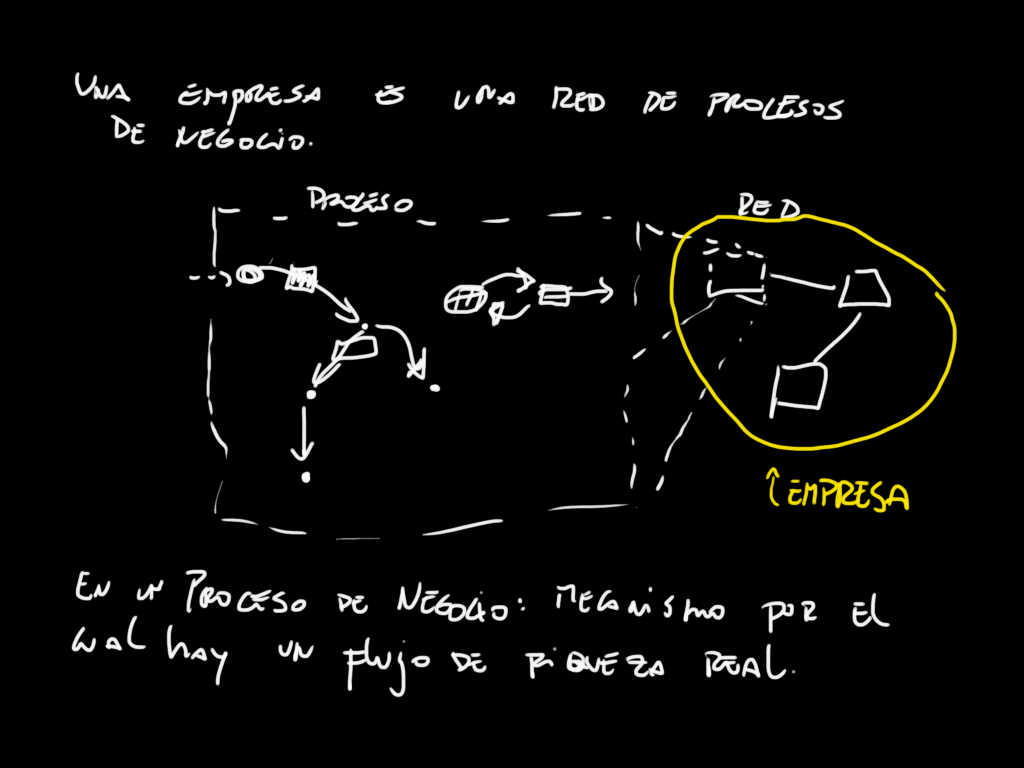 UNA EMPRESA ES UNA RED DE PROCESOS
DE NEGOCIO.
PROCESO
RED
↑ EMPRESA
EN UN PROCESO DE NEGOCIO: MECANISMO POR EL
CUAL HAY UN FLUJO DE RIQUEZA REAL.